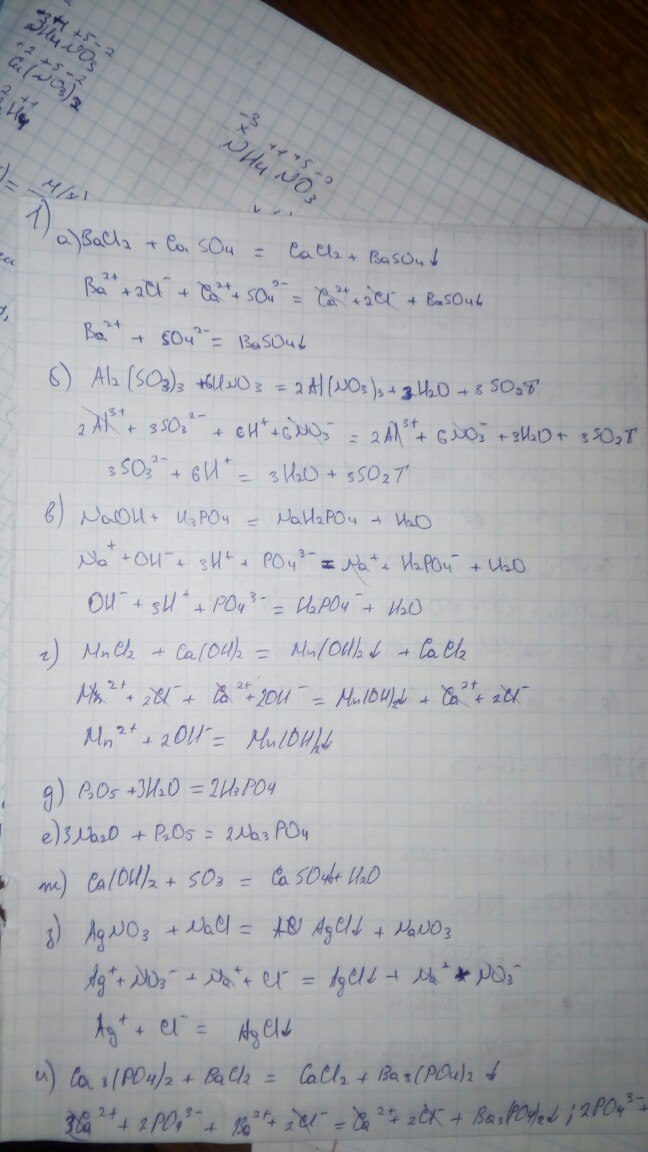 -3 +1 +5 -2
NH4NO3
+2 +5 -2
(NO3)2
-3
x +1 +5 -2
NH4NO3
1)
а) BaCl2 + CaSO4 = CaCl2 + BaSO4↓
Ba²⁺ + 2Cl⁻ + Ca²⁺ + SO4²⁻ = Ca²⁺ + 2Cl⁻ + BaSO4↓
Ba²⁺ + SO4²⁻ = BaSO4↓
б) Al2(SO3)3 + 6HNO3 = 2Al(NO3)3 + 3H2O + 3SO2↑
2Al³⁺ + 3SO3²⁻ + 6H⁺ + 6NO3⁻ = 2Al³⁺ + 6NO3⁻ + 3H2O + 3SO2↑
3SO3²⁻ + 6H⁺ = 3H2O + 3SO2↑
в) NaOH + H3PO4 = NaH2PO4 + H2O
Na⁺ + OH⁻ + 3H⁺ + PO4³⁻ = Na⁺ + H2PO4⁻ + H2O
OH⁻ + 3H⁺ + PO4³⁻ = H2PO4⁻ + H2O
г) MnCl2 + Ca(OH)2 = Mn(OH)2↓ + CaCl2
Mn²⁺ + 2Cl⁻ + Ca²⁺ + 2OH⁻ = Mn(OH)2↓ + Ca²⁺ + 2Cl⁻
Mn²⁺ + 2OH⁻ = Mn(OH)2↓
д) P2O5 + 3H2O = 2H3PO4
е) 3Na2O + P2O5 = 2Na3PO4
ж) Ca(OH)2 + SO3 = CaSO4↓ + H2O
з) AgNO3 + NaCl = AgCl↓ + NaNO3
Ag⁺ + NO3⁻ + Na⁺ + Cl⁻ = AgCl↓ + Na⁺ + NO3⁻
Ag⁺ + Cl⁻ = AgCl↓
и) Ca3(PO4)2 + BaCl2 = CaCl2 + Ba3(PO4)2↓
3Ca²⁺ + 2PO4³⁻ + Ba²⁺ + 2Cl⁻ = Ca²⁺ + 2Cl⁻ + Ba3(PO4)2↓; 2PO4³⁻ +